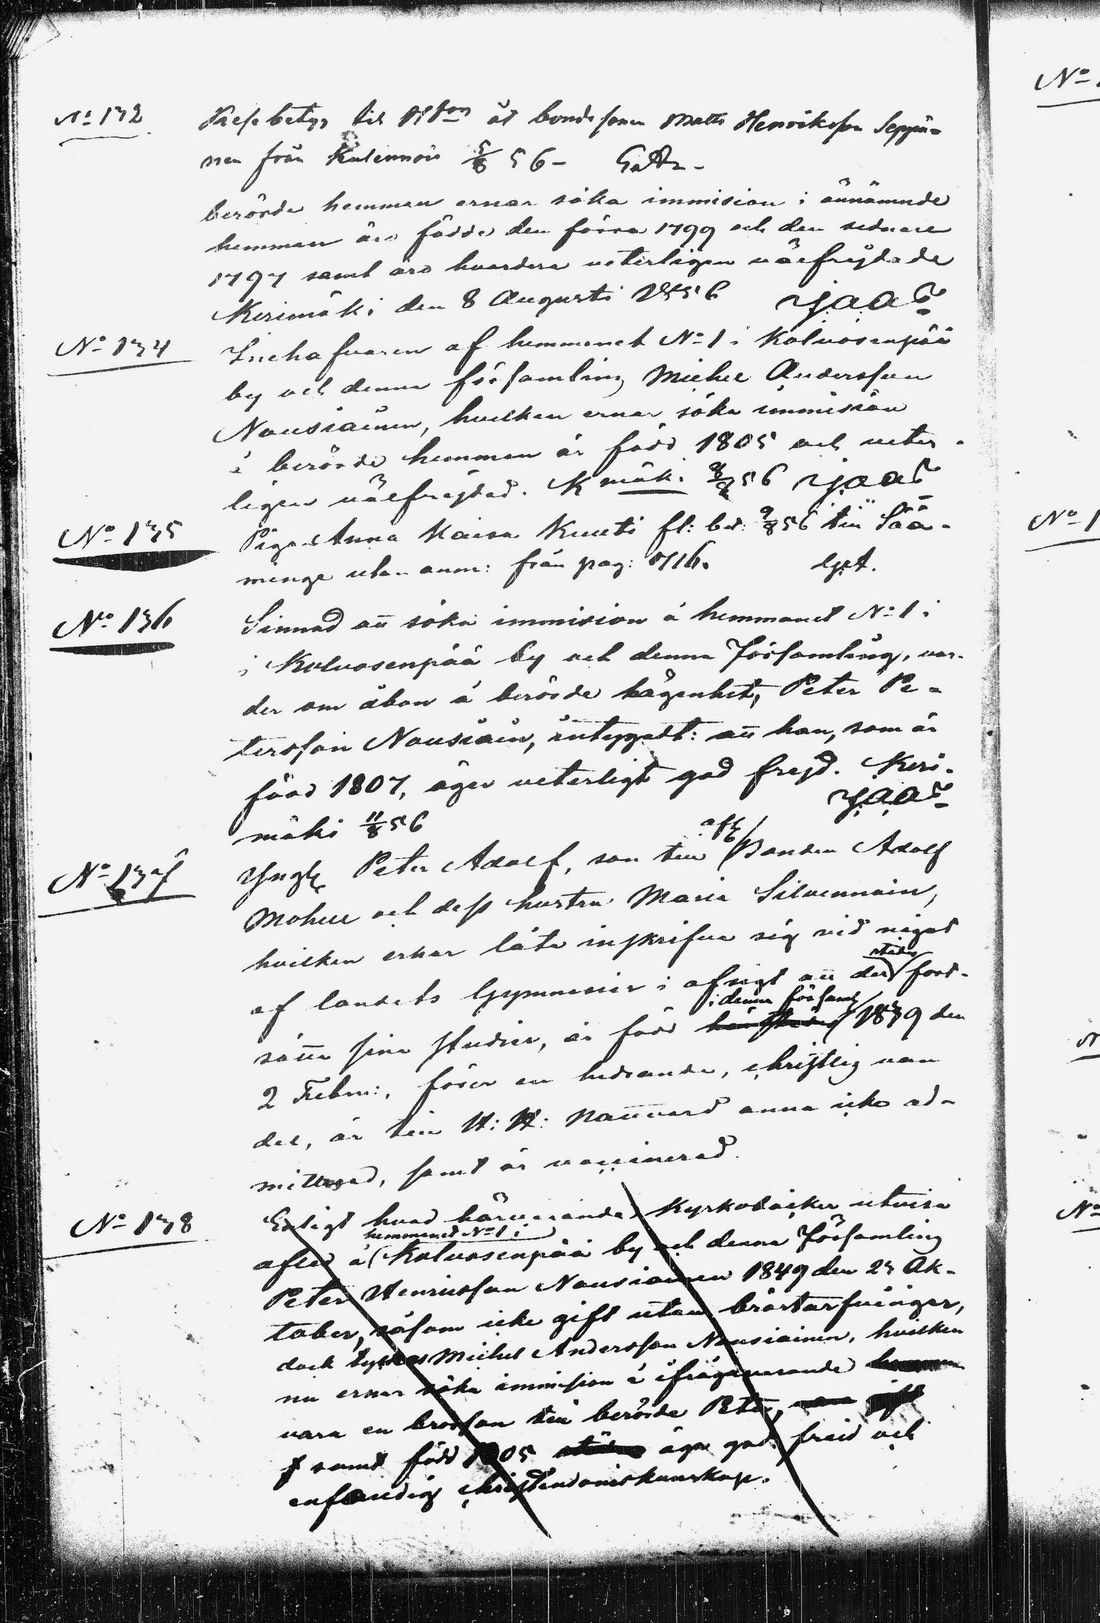 No 132 betyg till åt bondesonen Matts Henriksson Seppä-
nen från Kulennois 5/8 56 -
berörde hemman ernar söka immision i ännämnde
hemman äro födde den förra 1799 och den sednare
1797 samt äro hvardera veterligen välfrejdade
Kerimäki den 8 Augusti 1856
No 134 af hemmanet No 1 i Kolvosenpää
by och denna församling Michel Andersson
Nousiainen, hvilken ernar söka immision
å berörde hemman är född 1805 och veter-
ligen välfrejdad. K mäki 8/8 56
No 135 Pigan Anna Kaisa fl: bet: 9/8 56 till Sää-
minge utan anm: från pag: 
No 136 Sinnad att söka immision å hemmanet No 1 i
i Kolvosenpää by och denna Församling, var-
der om åbon å berörde lägenhet, Peter Pe-
tersson Nousiain, intygadt: att han, som är
född 1807, äger veterligt god frejd. Keri-
mäki 11/8 56
aft
No 137 Yngl Peter Adolf, son till Bonden Adolf
och dess hustru Maria Silvennoin,
hvilken ernar låta inskrifva sig vid något
städes
af landets Gymnasier i afsigt att der fort-
i denna församl
sätta sina studier, är född 1839 den
2 Febru:, förer en hedrande, christlig van
del, är till H: H: Nattvard ännu icke ad-
mitterad, samt är vaccinerad.
No 138 Enligt hvad härvarande Kyrkoböcker utvisa
hemmanet No 1 i
afled å Kolvosenpää by och denna Församling
Peter Henriksson Nousiainen 1849 den 23 Ok-
tober, såsom icke gift utan bröstarfvingar,
dock Michel Andersson Nousiainen, hvilken
nu ernar söka immission å ifrågavarande
vara en brorson till berörde Peter,
samt född 1805 äga god frejd och
enfaldig christendomskunskap.